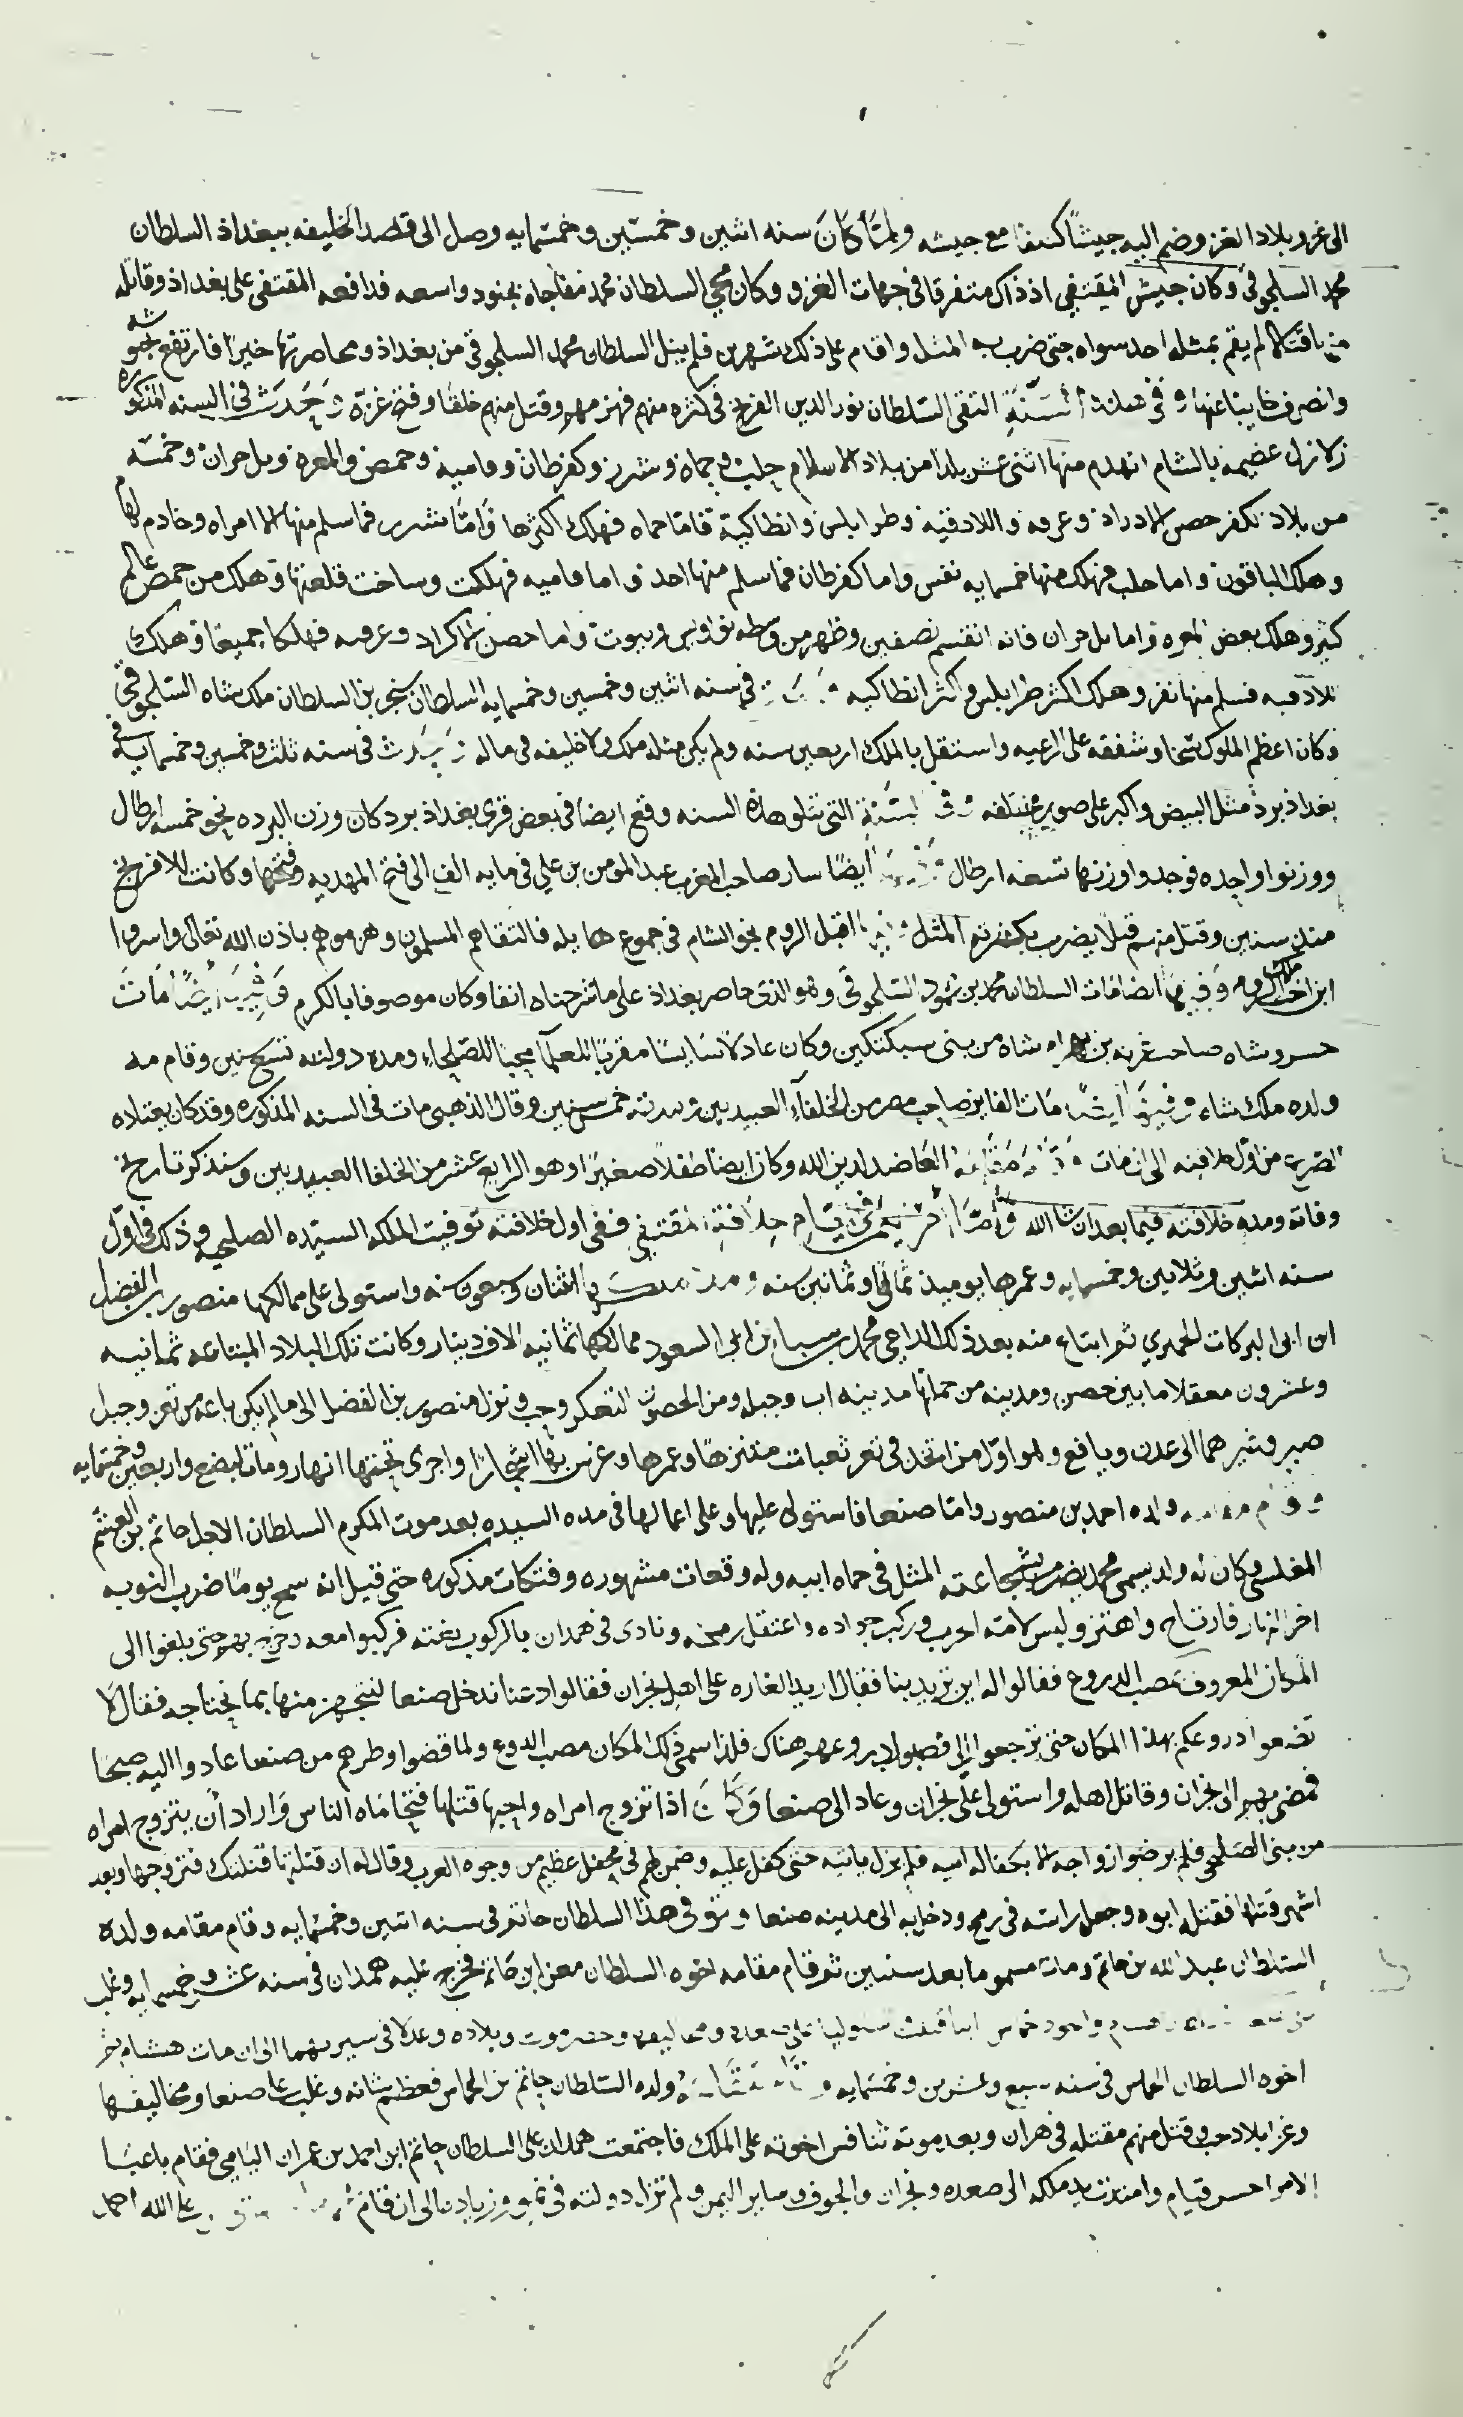 الى غزو بلاد الغز وضم اليه جيشا كثيفا مع جيشه ولما كان سنه اثنين وخمسين وخمسمايه وصل الى قصد الخليفه ببغداذ السلطان
محمد السلجوقي وكان جيش المقتفي اذ ذاك متفرقا في جهات الغزو وكان مجي السلطان محمد مفاجاه بجنود واسعه فدافعه المقتفي على بغداذ وقاتله
قتالا لم يقم بمثله احد سواه حتى ضرب به المثل واقام على ذلك شهرين فلم ينل السلطان محمد السلجوقي من بغداذ ومحاصرتها خيرا فارتفع بجيوشه
وانصرف خايبا عنها وفي هذه السنة التقى السلطان نور الدين الفرنج في كثره منهم فهزمهم وقتل منهم خلقا وفتح غزة وحدث في السنه المذكوره
زلازل عضيمه بالشام انهدم منها اثنى عشر بلدا من بلاد الاسلام حلب وحماه وشيرز وكفرطاب وفاميه وحمص والمعره وتل حران وخمسه
من بلاد الكفر حصن الاكراد وعرقه واللاذقيه وطرابلس وانطاكية فاما حماه فهلك اكثرها واما شيرر فما سلم منها الا امراه وخادم لها
وهلك الباقون واما حلب فهلك منها خمسمايه نفس واما كفرطاب فما سلم منها احد واما فاميه فهلكت وساخت قلعتها وهلك من حمص عالم
كثير وهلك بعض المعره واما تل حران فانه انقسم نصفين وظهر من وسطه نواويس وبيوت واما حصن الاكراد وعرقه فهلكا جميعا وهلك
اللاذقيه فسلم منها نفر وهلك اكثر طرابلس واكثر انطاكيه في سنه اثنين وخمسين وخمسمايه السلطان سنجر بن السلطان ملك شاه السلجوقي
وكان اعظم الملوك سخا وشفقه على الرعيه واستقل بالملك اربعين سنه ولم يكن مثله ملك ولا خليفه في ماله وحدث في سنه ثلث وخمسين وخمسمايه في
بغداذ برد مثل البيض واكبر على صور مختلفه وفي السنة التي تتلو هذه السنه وقع ايضا في بعض قرى بغداذ برد كان وزن البرده نحو خمسه ارطال
ووزنوا واحده فوجدوا وزنها تسعه ارطال وفيها ايضا سار صاحب المغرب عبد المومن بن علي في مايه الف الى فتح المهديه ففتحها وكانت للافرنج
سنين وقتل منهم قتلا يضرب بكثرته المثل وفيها اقبل الروم نحو الشام في جموع هايله فالتقاهم المسلمون وهزموهم باذن الله تعالى واسروا
ابن اخت ملك الروم وفيها ايضا مات السلطان محمد بن محمود السلجوقي وهو الذي حاصر بغداذ على ما شرحناه انفا وكان موصوفا بالكرم وفيها ايضا مات
خسرو شاه صاحب غزنه بن بهرام شاه من بني سبكتكين وكان عادلا سايسا مقربا للعلما محبا للصلحاء ومده دولته تسع سنين وقام مه
ولده ملك شاه وفيها ايضا مات الفايز صاحب مصر من الخلفاء العبيديين ومدته خمس سنين وقال الذهبي مات في السنه المذكوره وقد كان يعتاده
الصرع من اول خلافته الى ان مات مقامه العاضد لدين الله وكان ايضا طفلا صغيرا وهو الرابع عشر من الخلفا العبيديين وسنذكر تاريخ
وفاته ومده خلافته فيما بعد ان شا الله واما في ايام خلافة المقتفي ففي اول خلافته توفيت الملكه السيده الصليحيه وذلك في اول
سنه اثنين وثلاثين وخمسمايه وعمرها يوميذ ثماني وثمانين سنه واستولى على ممالكها منصور بن المفضل
ابن ابي البركات الحميري ثم ابتاع منه بعد ذلك الداعي محمد بن سبا بن ابي السعود ممالكها ثمانيه الاف دينار وكانت تلك البلاد المبتاعه ثمانيه
وعشرون معقلا ما بين حصن ومدينه من جملتها مدينه اب وجبله ومن الحصون التعكر وحب ونزل منصور بن المفضل الى ما لم يكن باعه من تعز وجبل
صبر وغيرهما الى عدن ويافع وهو اول من اتخذ في تعز ثعبات متنزها وعمرها وغرس بها اشجارا واجرى تحتها انهار ومات لبضع واربعين وخمسمايه
وقام مقامه ولده احمد بن منصور واما صنعا فاستولى عليها وعلى اعمالها في مده السيده بعد موت المكرم السلطان الاجل حاتم بن الغشم
المغلسي وكان له ولد يسمى محمد يضرب بشجاعته المثل في حماه ابيه وله وقعات مشهوره وفتكات مذكوره حتى قيل انه سمع يوما ضرب النوبه
اخر النهار فارتاح واهتز ولبس لامته الحرب وركب جواده واعتقل رمحه ونادى في همدان بالركوب بغته فركبوا معه وخرج بهم حتى بلغوا الى
المكان المعروف بمصب الدروع فقالوا له اين تريد بنا فقال اريد الغاره على اهل نجران فقالوا دعنا ندخل صنعا لنتجهز منها بما نحتاجه فقال لا
تضعوا دروعكم بهذا المكان حتى ترجعوا الي فصبوا دروعهم هناك فلذا سمي ذلك المكان مصب الدروع ولما قضوا وطرهم من صنعا عادوا اليه صبحا
فمضى بهم الى نجران وقاتل اهله واستولى على نجران وعاد الى صنعا وكان اذا تزوج امراه واحبها قتلها فتحاماه الناس واراد ان يتزوج امراه
من بني الصليحي فلم يرضوا زواجه الا بكفاله ابيه فلم يزل بابيه حتى كفل عليه وضمن لهم في محفل عظيم من وجوه العرب وقال له ان قتلتها قتلتك فتزوجها وبعد
اشهر قتلها فقتله ابوه وجعل راسه في رمح ودخل به الى مدينه صنعا وتوفي هذا السلطان حاتم في سنه اثنين وخمسمايه وقام مقامه ولده
السلطان عبد الله بن حاتم ومات مسموما بعد سنتين ثم قام مقامه اخوه السلطان معن ابن حاتم فخرج عليه همدان في سنه عشر وخمسمايه وغلب
ومخاليفها وحضرموت وبلاده وعدلا في سيرتهما الى ان مات هشام
اخوه السلطان الحماس في سنه سبع وعشرين وخمسمايه وقام مقامه ولده السلطان حاتم بن الحماس فعظم شانه وغلب على صنعا ومخاليفها
وغزا بلاد حب وقتل منهم مقتله في هران وبعد موته تنافس اخوته على الملك فاجتمعت همدان على السلطان حاتم ابن احمد بن عمران اليامي فقام باعبا
الامر احسن قيام وامتدت يد ملكه الى صعده ونجران والجوف وساير اليمن ولم تزل دولته في نمو وزيادن الى ان قام على الله احمد